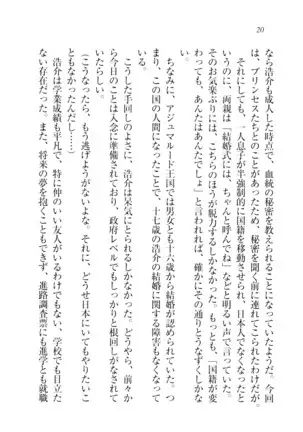 20
なら浩介が成人した時点で、血統の秘密を教えられることになっていたようだ。今回
は、プリンセスたちとのことがあったため、秘密を聞く前に連れてこられたわけだが。
それにしても、一人息子が半強制的に国籍を移動させられ、日本人でなくなったと
いうのに、両親は「結婚式には、ちゃんと呼んでね」などと明るい声で言っていた。
そのお気楽ぶりには、こちらのほうが脱力するしかなかった。もっとも、「国籍が変
わっても、あんたはあんたでしょ」と言われれば、確かにその通りとうなずくしかな
い。
ちなみに、アジュマルード王国では男女とも十六歳から結婚が認められていた。つ
まり、この国の人間になったことで、十七歳の浩介の結婚に関する障害もなくなって
いる。
こうした手回しのよさに、浩介は呆気にとられるしかなかった。どうやら、前々か
ら今日のことは入念に準備されており、政府レベルでもしっかりと根回しがなされて
いたらしい。
(こうなったら、もう逃げようがないな。それに、どうせ日本にいてもやりたいこ
となんてなかったし……)
浩介は学業成績も平凡で、特に仲のいい友人がいるわけでもなく、学校でも目立た
ない存在だった。また、将来の夢を抱くこともできず、進路調査票にも進学とも就職